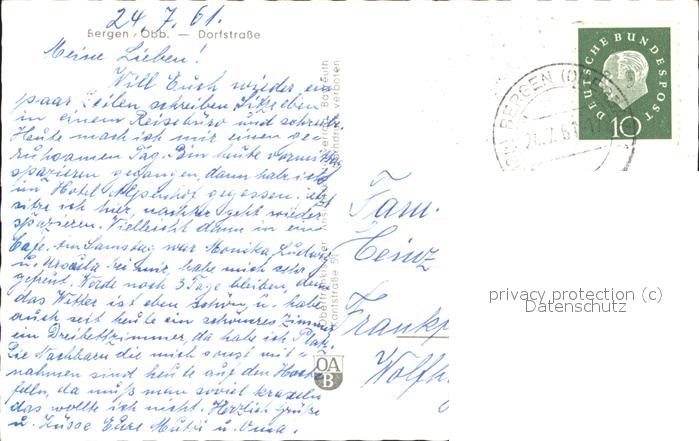 24. 7. 61.
Bergen / Obb. — Dorfstraße
Meine Lieben!
Will Euch wieder ein
paar Zeilen schreiben. Sitze eben
in einem Reisebüro und schreib.
Heute mach ich mir einen ge-
ruhsamen Tag. Bin heute vormitt.
spazieren gegangen, dann hab ich
im Hotel Alpenhof gegessen. Jetzt
sitze ich hier, nachher geht wieder
spazieren. Vielleicht dann in ein
Cafe. Am Samstag war Monika, Ludwig
u. Ursula bei mir, habe mich sehr
gefreut. Werde noch 3 Tage bleiben, denn
das Wetter ist eben schön, u. habe
auch seit heute ein schöneres Zimmer
ein Dreibettzimmer, da hab ich Platz.
Die Nachbarn die mich sonst mit
nahmen sind heute auf den Hoch
felln, da muß man soviel kraxeln
das wollte ich nicht. Herzliche Grüße
u. Küsse Eure Mutti u. Oma.
Ansichtskartenverlag Bayreuth
verboten
OA
B
DEUTSCHE BUNDESPOST
10
BERGEN (OBERBAY)
24.7.61
Fam.
Heinz
Frankf
Wolfh
privacy protection (c)
Datenschutz